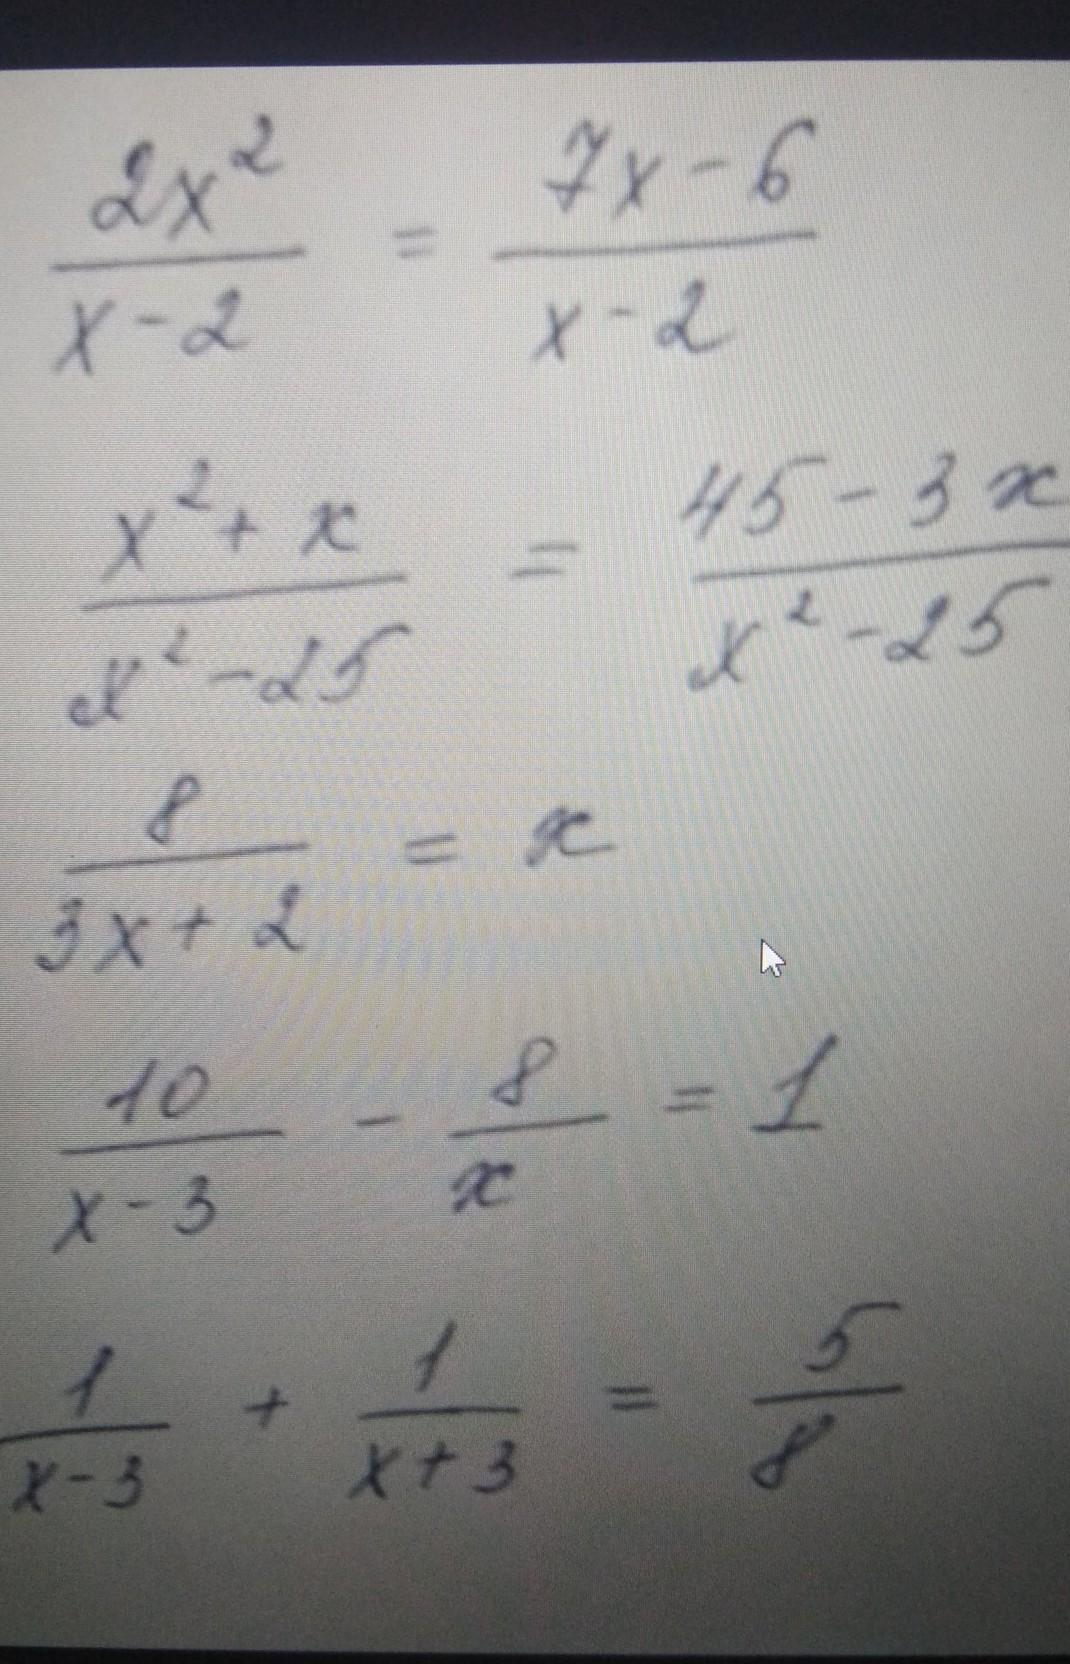 2x²/(x-2) = (7x-6)/(x-2)
(x²+x)/(x²-25) = (45-3x)/(x²-25)
8/(3x+2) = x
10/(x-3) - 8/x = 1
1/(x-3) + 1/(x+3) = 5/8